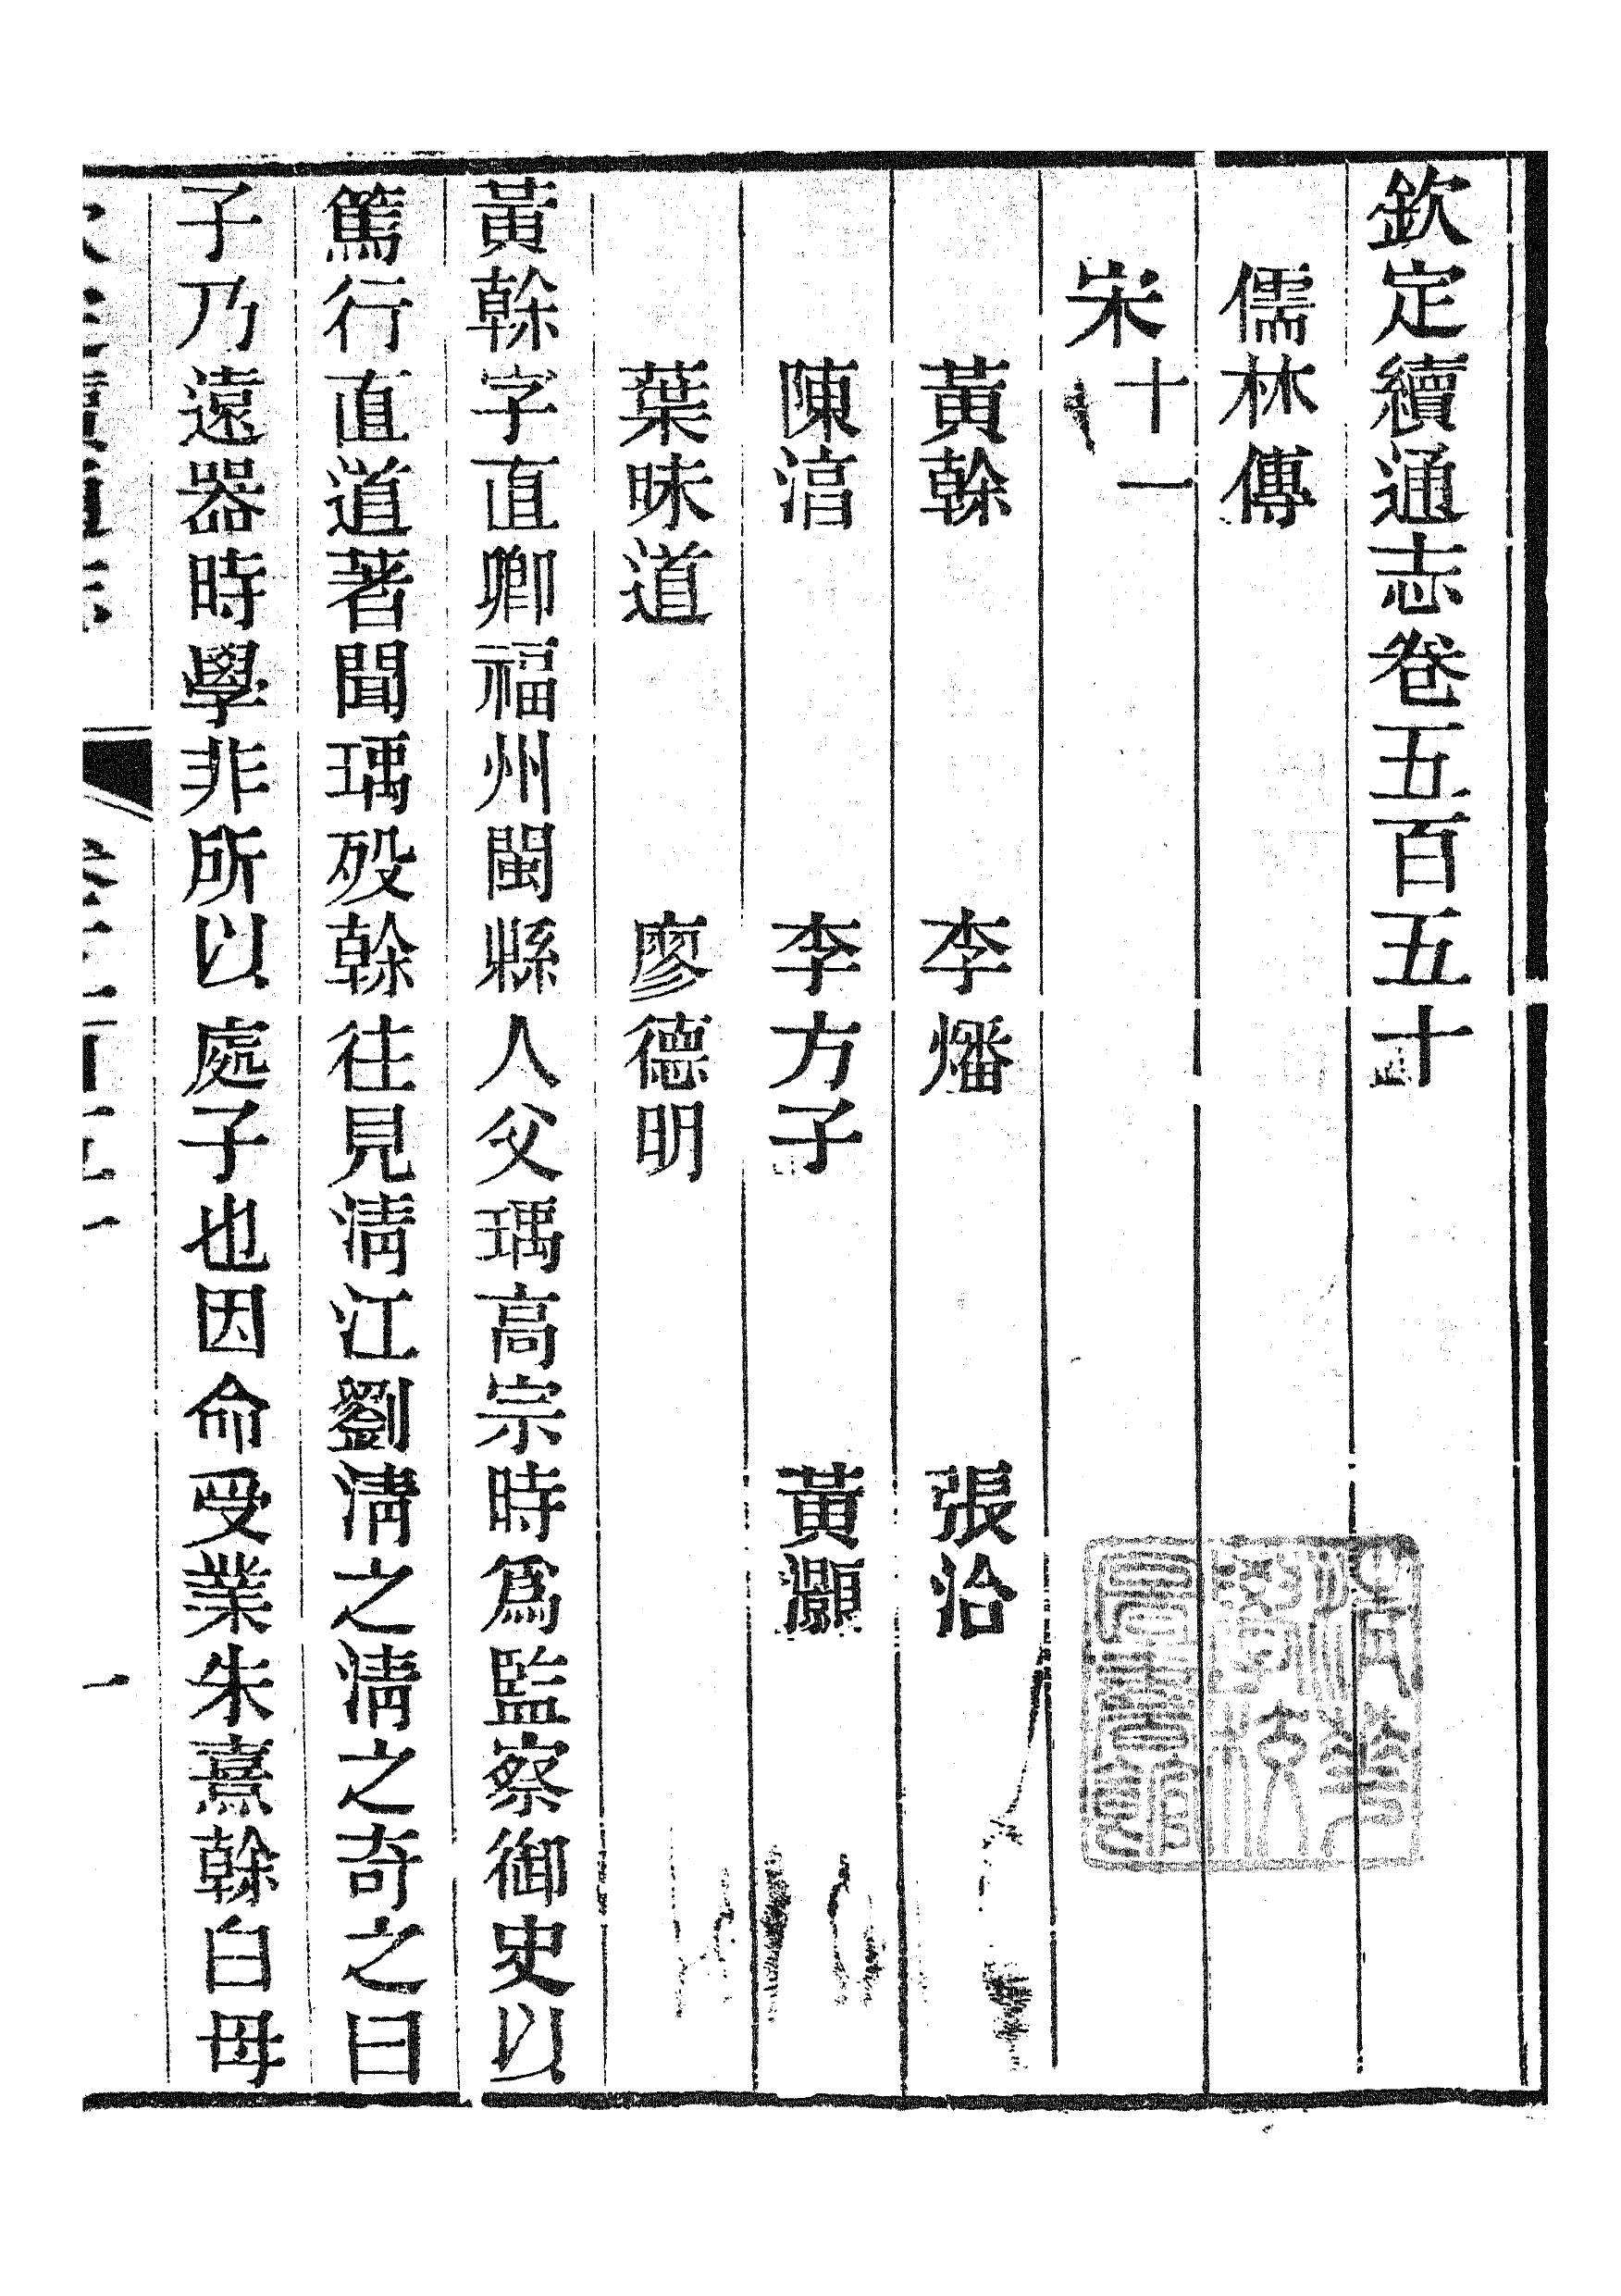 欽定續通志卷五百五十
儒林傳
宋十一
黃榦　李燔　張洽
陳淳　李方子　黃灝
葉味道　廖德明
黃榦字直卿福州閩縣人父瑀高宗時爲監察御史以
篤行直道著聞瑀殁榦往見淸江劉淸之淸之奇之曰
子乃遠器時學非所以處子也因命受業朱熹榦白母
一
清華
學校
圖書館